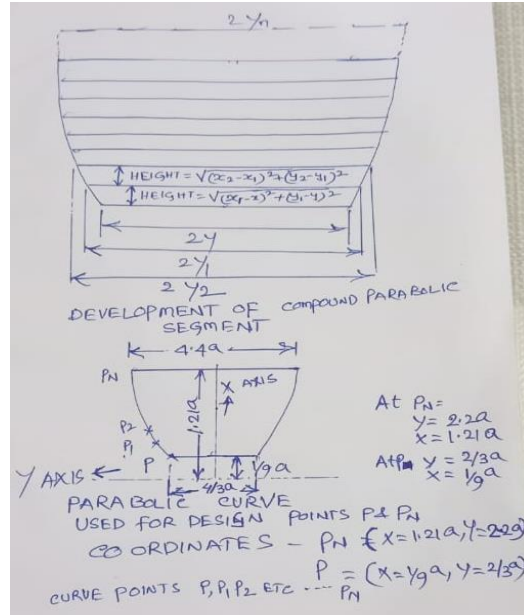 2Yn
HEIGHT = √(x2-x1)²+(y2-y1)²
HEIGHT = √(x1-x)²+(y1-y)²
2Y
2Y1
2Y2
DEVELOPMENT OF COMPOUND PARABOLIC
SEGMENT
4.4a
PN
X AXIS
1.21a
P2
P1
P
1/9a
Y AXIS
4/3a
At PN=
y= 2.2a
x=1.21a
At P y=2/3a
x=1/9a
PARABOLIC CURVE
USED FOR DESIGN POINTS P & PN
CO ORDINATES - PN = (X=1.21a, Y=2.2a)
P = (X=1/9a, Y=2/3a)
CURVE POINTS P, P1 P2 ETC ---- PN